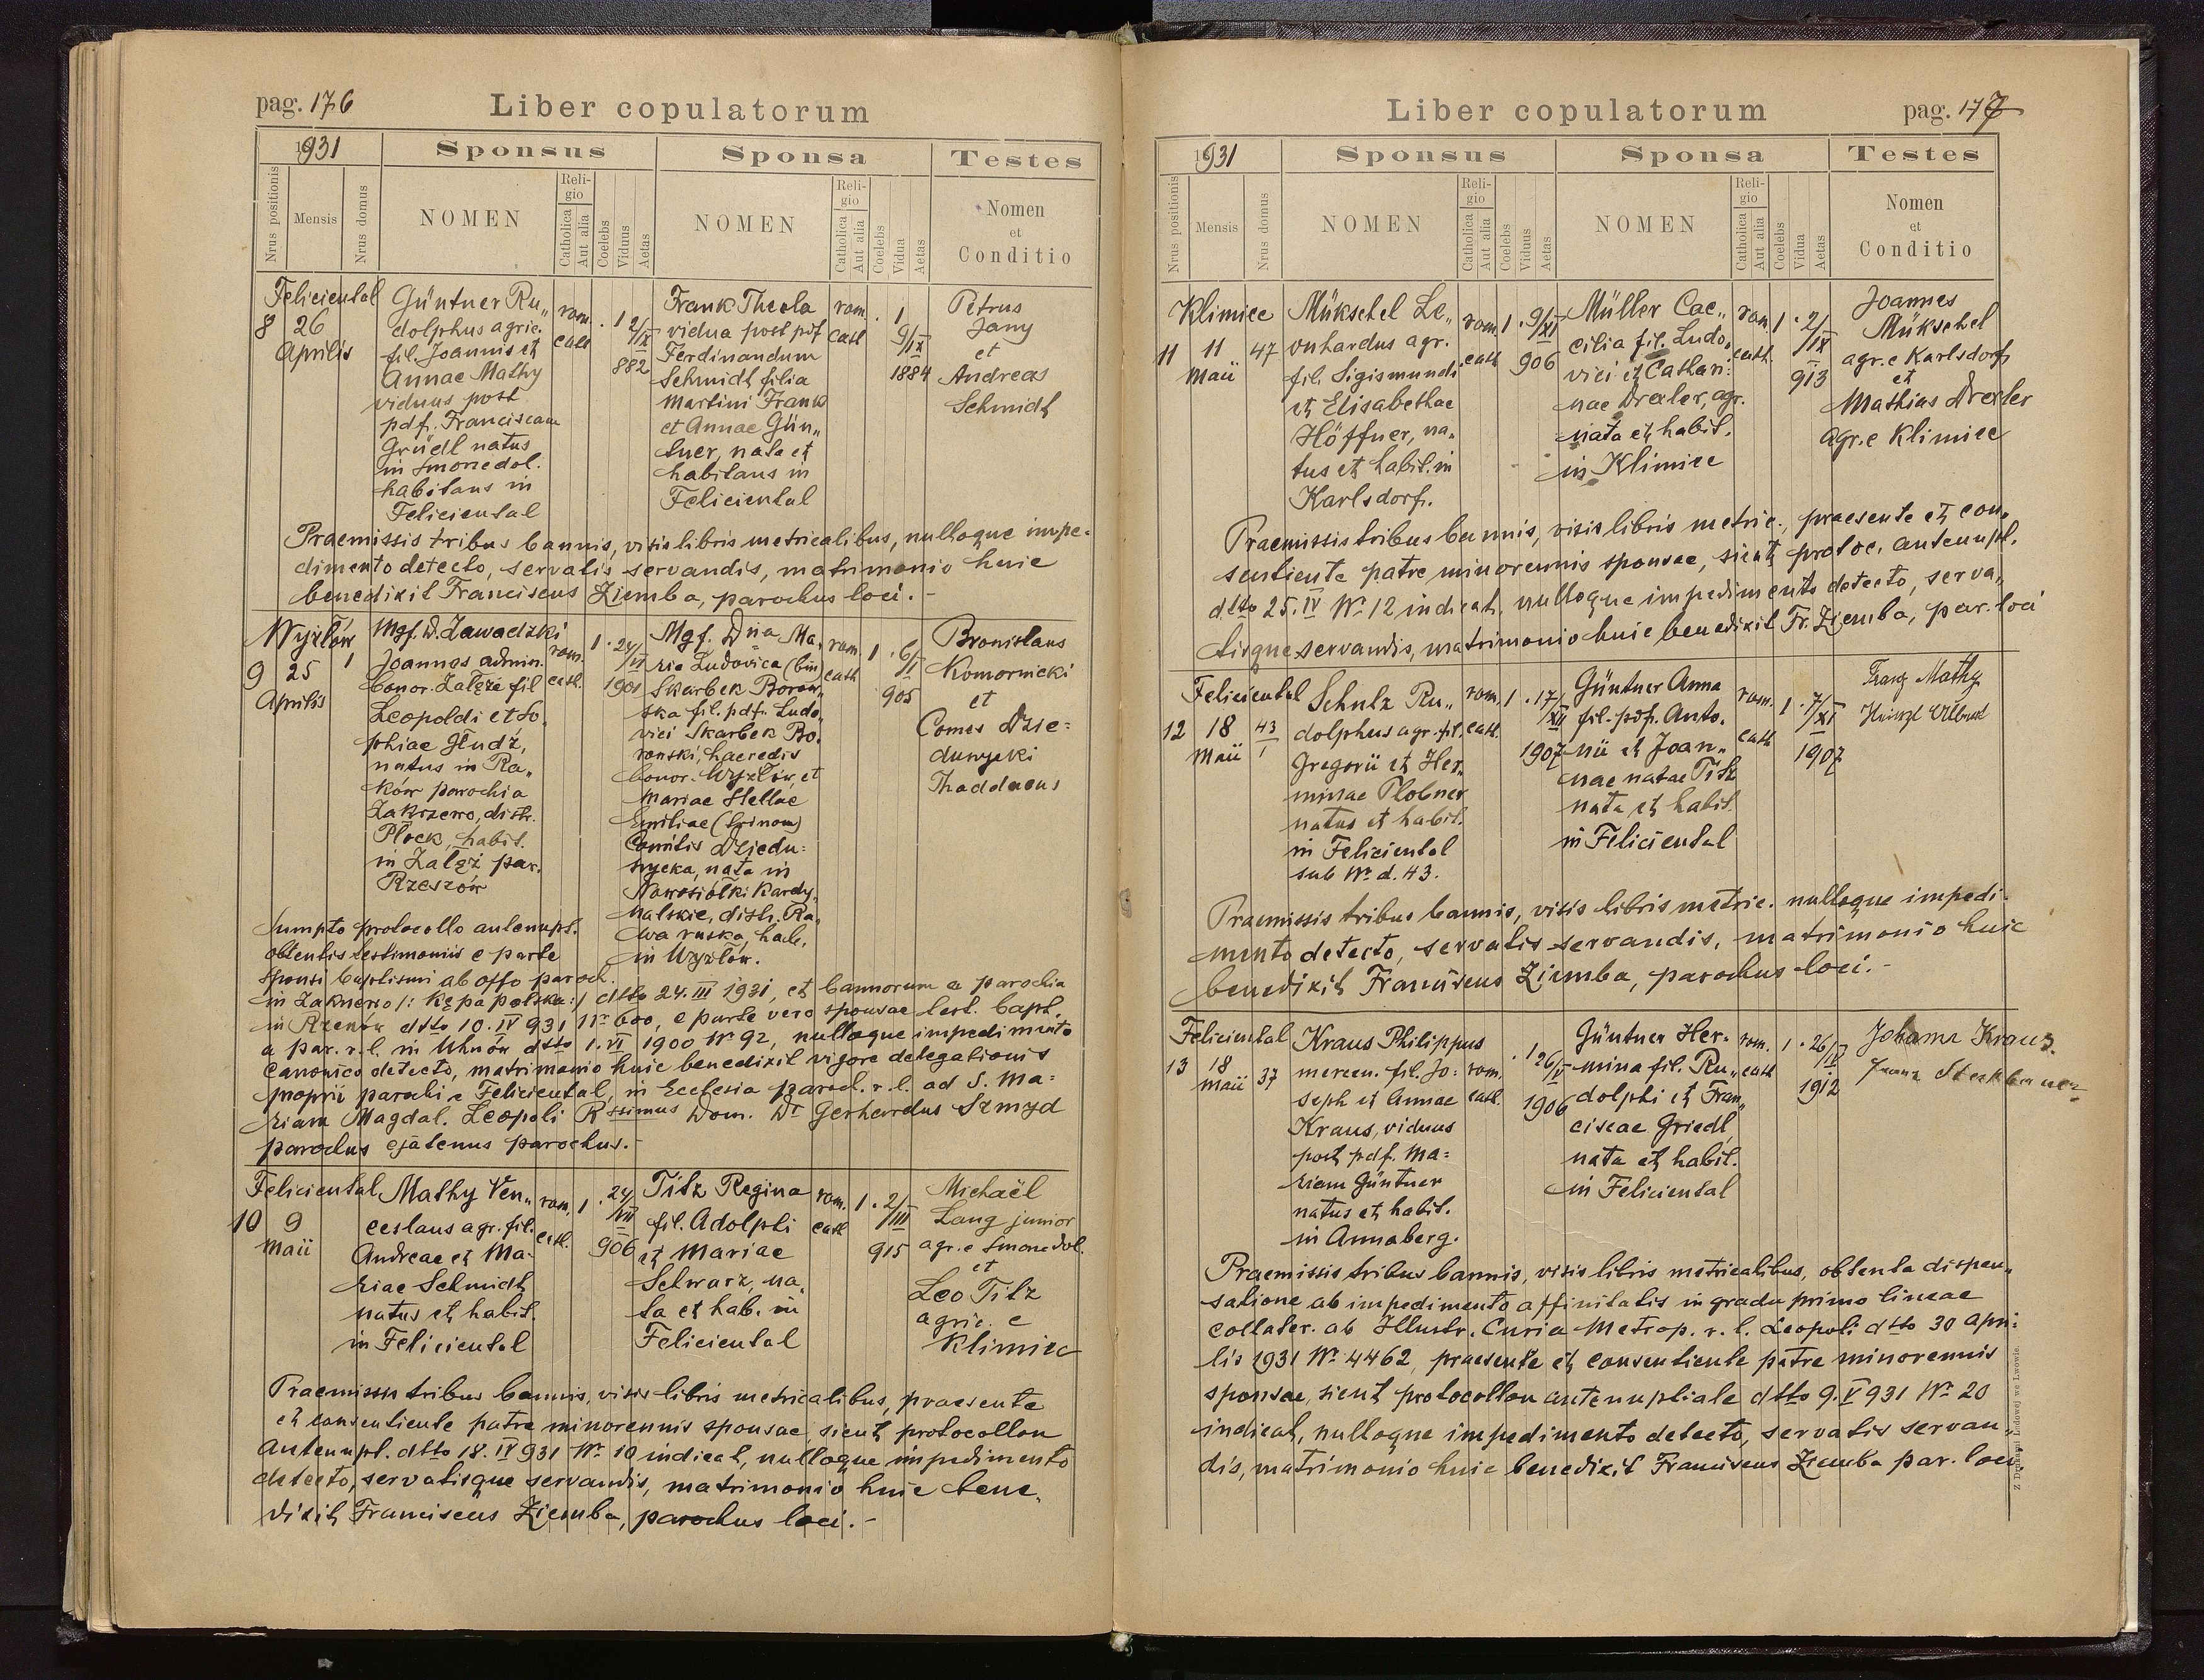 pag. 176
Liber copulatorum
1931
Sponsus
Sponsa
Testes
Nrus positionis
Mensis
Nrus domus
NOMEN
Religio
Catholica
Aut alia
Coelebs
Viduus
Aetas
NOMEN
Religio
Catholica
Aut alia
Coelebs
Vidua
Aetas
Nomen
et
Conditio
Feliciental
8 26
Aprilis
Güntner Ru„
dolphus agric.
fil. Joannis et
Annae Mathy
viduus post
pdf. Franciscam
Griedl natus
in Smorze dol.
habitans in
Feliciental
rom.
cath
. 1 2/IX
882
Frank Thecla
vidua post pdf
Ferdinandum
Schmidt filia
Martini Frank
et Annae Gün„
tner, nata et
habitans in
Feliciental
rom.
cath
. 1
9/IX
1884
Petrus
Jany
et
Andreas
Schmidt
Praemissis tribus bannis, visis libris metricalibus, nulloque impe-
dimento detecto, servatis servandis, matrimonio huic
benedixit Franciscus Ziemba, parochus loci. -
Wyżłów
9 25 1
Aprilis
Mgf. D. Zawadzki
Joannes admin.
bonor. Załęże fil
Leopoldi et So„
phiae Głudź,
natus in Ra„
ków parochia
Zakrzewo, distr.
Płock, habit.
in Załęż par.
Rzeszów
rom.
cath.
1 . 24/VI
1901
Mgf. Dna Ma„
ria Ludovica (bin)
Skarbek Borow„
ska fil. pdf. Ludo„
vici Skarbek Bo„
rowski, haeredis
bonor. Wyżłów et
Mariae Stellae
Emiliae (trinom)
Comitis Dziedu-
szycka, nata in
Nowosiółki Kardy„
nalskie, distr. Ra„
wa ruska, hab.
in Wyżłów.
rom.
cath
1 . 6/I
905
Bronislaus
Komornicki
et
Comes Dzie-
duszycki
Thaddaeus
Sumpto protocollo antenupt.
obtentis testimoniis e parte
sponsi baptismi ab offo paroch.
in Zakrzewo /: Kępa polska :/ dtto 24.III 1931, et bannorum a parochia
in Rzeszów dtto 10.IV 931 Nr 600, e parte vero sponsae test. bapt.
a par. r. l. in Uhnów dtto 1.VI 1900 Nr 92, nulloque impedimento
canonico detecto, matrimonio huic benedixit vigore delegationis
proprii parochi e Feliciental, in Ecclesia paroch. r. l. ad S. Ma-
riam Magdal. Leopoli Rssimus Dom. Dr Gerhardus Szmyd
parochus ejatenus parochus. -
Feliciental
10 9
Maii
Mathy Ven„
ceslaus agr. fil.
Andreae et Ma-
riae Schmidt
natus et habit.
in Feliciental
rom.
cath.
1 . 24/VII
906
Titz Regina
fil. Adolphi
et Mariae
Schwarz, na„
ta et hab. in
Feliciental
rom.
cath
1 . 2/III
915
Michaël
Lang junior
agr. e Smorze dol.
et
Leo Titz
agric. e
Klimiec
Praemissis tribus bannis, visis libris metricalibus, praesente
et consentiente patre minorennis sponsae, sicut protocollon
Antenupt. dtto 18.IV 931 Nr. 10 indicat, nulloque impedimento
detecto, servatisque servandis, matrimonio huic bene„
dixit Franciscus Ziemba, parochus loci. -
Liber copulatorum
pag. 177
1931
Sponsus
Sponsa
Testes
Nrus positionis
Mensis
Nrus domus
NOMEN
Religio
Catholica
Aut alia
Coelebs
Viduus
Aetas
NOMEN
Religio
Catholica
Aut alia
Coelebs
Vidua
Aetas
Nomen
et
Conditio
Klimiec
11 11 47
Maii
Mükschel Le„
onhardus agr.
fil. Sigismundi
et Elisabethae
Höffner, na„
tus et habit. in
Karlsdorf.
rom
cath
1 . 9/XI
906
Müller Cae„
cilia fil. Ludo„
vici et Cathari-
nae Drexler, agr.
nata et habit.
in Klimiec
rom
cath.
1 . 2/IX
913
Joannes
Mükschel
agr. e Karlsdorf
et
Mathias Drexler
agr. e Klimiec
Praemissis tribus bannis, visis libris metric., praesente et con„
sentiente patre minorennis sponsae, sicut protoc. antenupt.
dtto 25.IV Nr. 12 indicat, nulloque impedimento detecto, serva„
tisque servandis, matrimonio huic benedixit Fr. Ziemba, par. loci
Feliciental
12 18 43
1
Maii
Schulz Ru„
dolphus agr. fil.
Gregorii et Her„
minae Plobner
natus et habit.
in Feliciental
sub Nr. d. 43.
rom.
cath.
1 . 17/XII
1907
Güntner Anna
fil. pdf. Anto„
nii et Joan„
nae natae Titz
nata et habit.
in Feliciental
rom.
cath
1 . 7/XI
1907
Franz Mathy
Heinzl
Praemissis tribus bannis, visis libris metric. nulloque impedi-
mento detecto, servatis servandis, matrimonio huic
benedixit Franciscus Ziemba, parochus loci. -
Feliciental
13 18 37
Maii
Kraus Philippus
mercen. fil. Jo-
seph et Annae
Kraus, viduus
post pdf. Ma-
riam Güntner
natus et habit.
in Annaberg.
rom.
cath.
. 1 26/V
1906
Güntner Her-
mina fil. Ru„
dolphi et Fran„
ciscae Griedl,
nata et habit.
in Feliciental
rom.
cath
1 . 26/IV
1912
Johann Kraus.
Franz
Praemissis tribus bannis, visis libris metricalibus, obtenta dispen„
satione ab impedimento affinitatis in gradu primo lineae
collater. ab Illustr. Curia Metrop. r. l. Leopoli dtto 30 Apri-
lis 1931 Nr. 4462, praesente et consentiente patre minorennis
sponsae, sicut protocollon antenuptiale dtto 9.V 931 Nr. 20
indicat, nulloque impedimento detecto, servatis servan„
dis, matrimonio huic benedixit Franciscus Ziemba par. loci
Z Drukarni Ludowej we Lwowie.